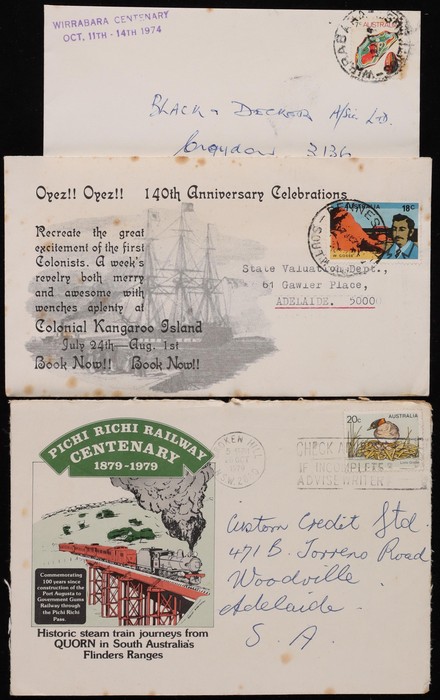 WIRRABARA CENTENARY
OCT, 11TH - 14TH 1974
AUSTRALIA
BLACK & DECKER A/SIA LTD.
Croydon 3136
Oyez!! Oyez!! 140th Anniversary Celebrations
Recreate the great
excitement of the first
Colonists. A week's
revelry both merry
and awesome with
wenches aplenty at
Colonial Kangaroo Island
July 24th—Aug. 1st
Book Now!! Book Now!!
AUSTRALIA 18c
W GOSSE
State Valuation Dept.,
61 Gawler Place,
ADELAIDE. 5000
PICHI RICHI RAILWAY
CENTENARY
1879-1979
Commemorating
100 years since
construction of the
Port Augusta to
Government Gums
Railway through
the Pichi Richi
Pass.
Historic steam train journeys from
QUORN in South Australia's
Flinders Ranges
20c AUSTRALIA
KEN HILL
CHECK
IF INCOMPLETE
ADVISE WRITER
Custom Credit Ltd.
471B. Torrens Road
Woodville
Adelaide.
S. A.